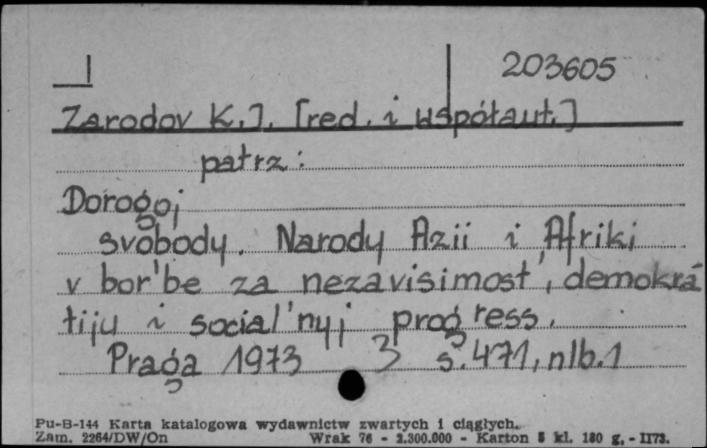 203605
Zarodov K.J. [red. i współaut.]
patrz:
Dorogoj
svobody. Narody Azii i Afriki
v bor'be za nezavisimost', demokra
tiju i social'nyj progress.
Praga 1973 s. 471, nlb. 1
Pu-B-144 Karta katalogowa wydawnictw zwartych i ciągłych.
Zam. 2264/DW/On Wrak 76 - 2.300.000 - Karton 5 kl. 180 g. - II73.